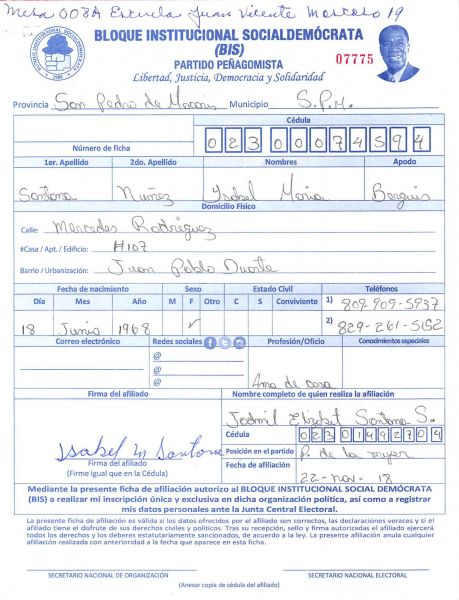 Mesa 008A Escuela Juan Vicente Moscoso 19
BLOQUE INSTITUCIONAL SOCIALDEMÓCRATA
(BIS)
PARTIDO PEÑAGOMISTA
07775
Libertad, Justicia, Democracia y Solidaridad
Provincia San Pedro de Macoris Municipio S.P.M.
Cédula
Número de ficha 023 0007459 4
1er. Apellido 2do. Apellido Nombres Apodo
Santana Nuñez Isabel Maria
Domicilio Físico
Calle: Mercedes Rodriguez
#Casa / Apt. / Edificio: H107
Barrio / Urbanización: Juan Pablo Duarte
Fecha de nacimiento Sexo Estado Civil Teléfonos
Día Mes Año M F Otro C S Conviviente 1) 809-909-5937
18 Junio 1968 ✓ 2) 829-261-5152
Correo electrónico Redes sociales Profesión/Oficio Conocimientos especiales
@
@
@ Ama de casa
Firma del afiliado Nombre completo de quien realiza la afiliación
Elizabet Santana S.
Cédula 023 0149270 4
Isabel M Santana Posición en el partido P. de la mujer
Firma del afiliado
(Firme igual que en la Cédula) Fecha de afiliación 22-nov-18
Mediante la presente ficha de afiliación autorizo al BLOQUE INSTITUCIONAL SOCIAL DEMÓCRATA
(BIS) a realizar mi inscripción única y exclusiva en dicha organización política, así como a registrar
mis datos personales ante la Junta Central Electoral.
La presente ficha de afiliación es válida si los datos ofrecidos por el afiliado son correctos, las declaraciones veraces y si el
afiliado tiene el disfrute de sus derechos civiles y políticos. Tras su recepción, sello y firma autorizadas el afiliado ejercerá
todos los derechos y los deberes estatutariamente sancionados, de acuerdo a la ley. La presente afiliación anula cualquier
afiliación realizada con anterioridad a la fecha que aparece en esta ficha.
SECRETARIO NACIONAL DE ORGANIZACIÓN SECRETARIO NACIONAL ELECTORAL
(Anexar copia de cédula del afiliado)